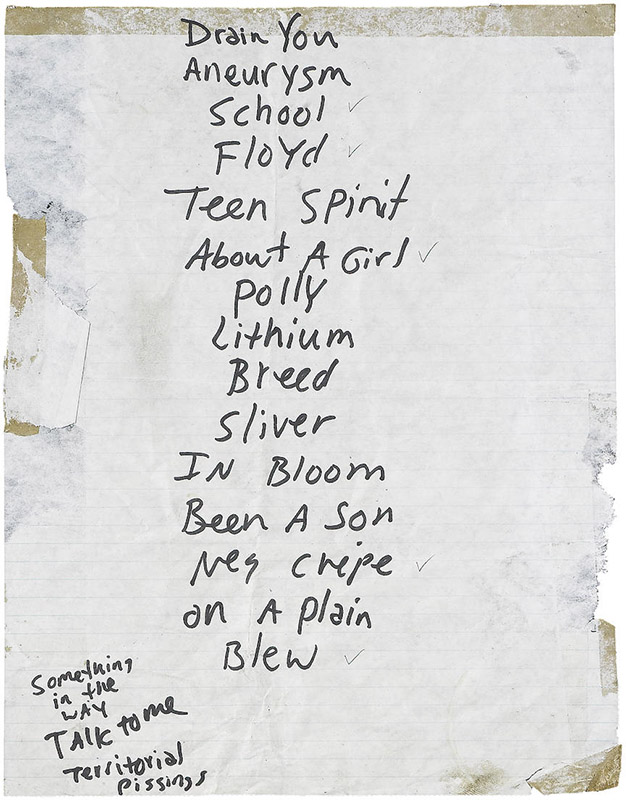 Drain You
Aneurysm
School ✓
Floyd ✓
Teen Spirit
About A Girl ✓
Polly
Lithium
Breed
Sliver
IN Bloom
Been A Son
Neg crepe ✓
on A plain
Blew ✓
Something
in the
WAY
TALK to me
Territorial
Pissings